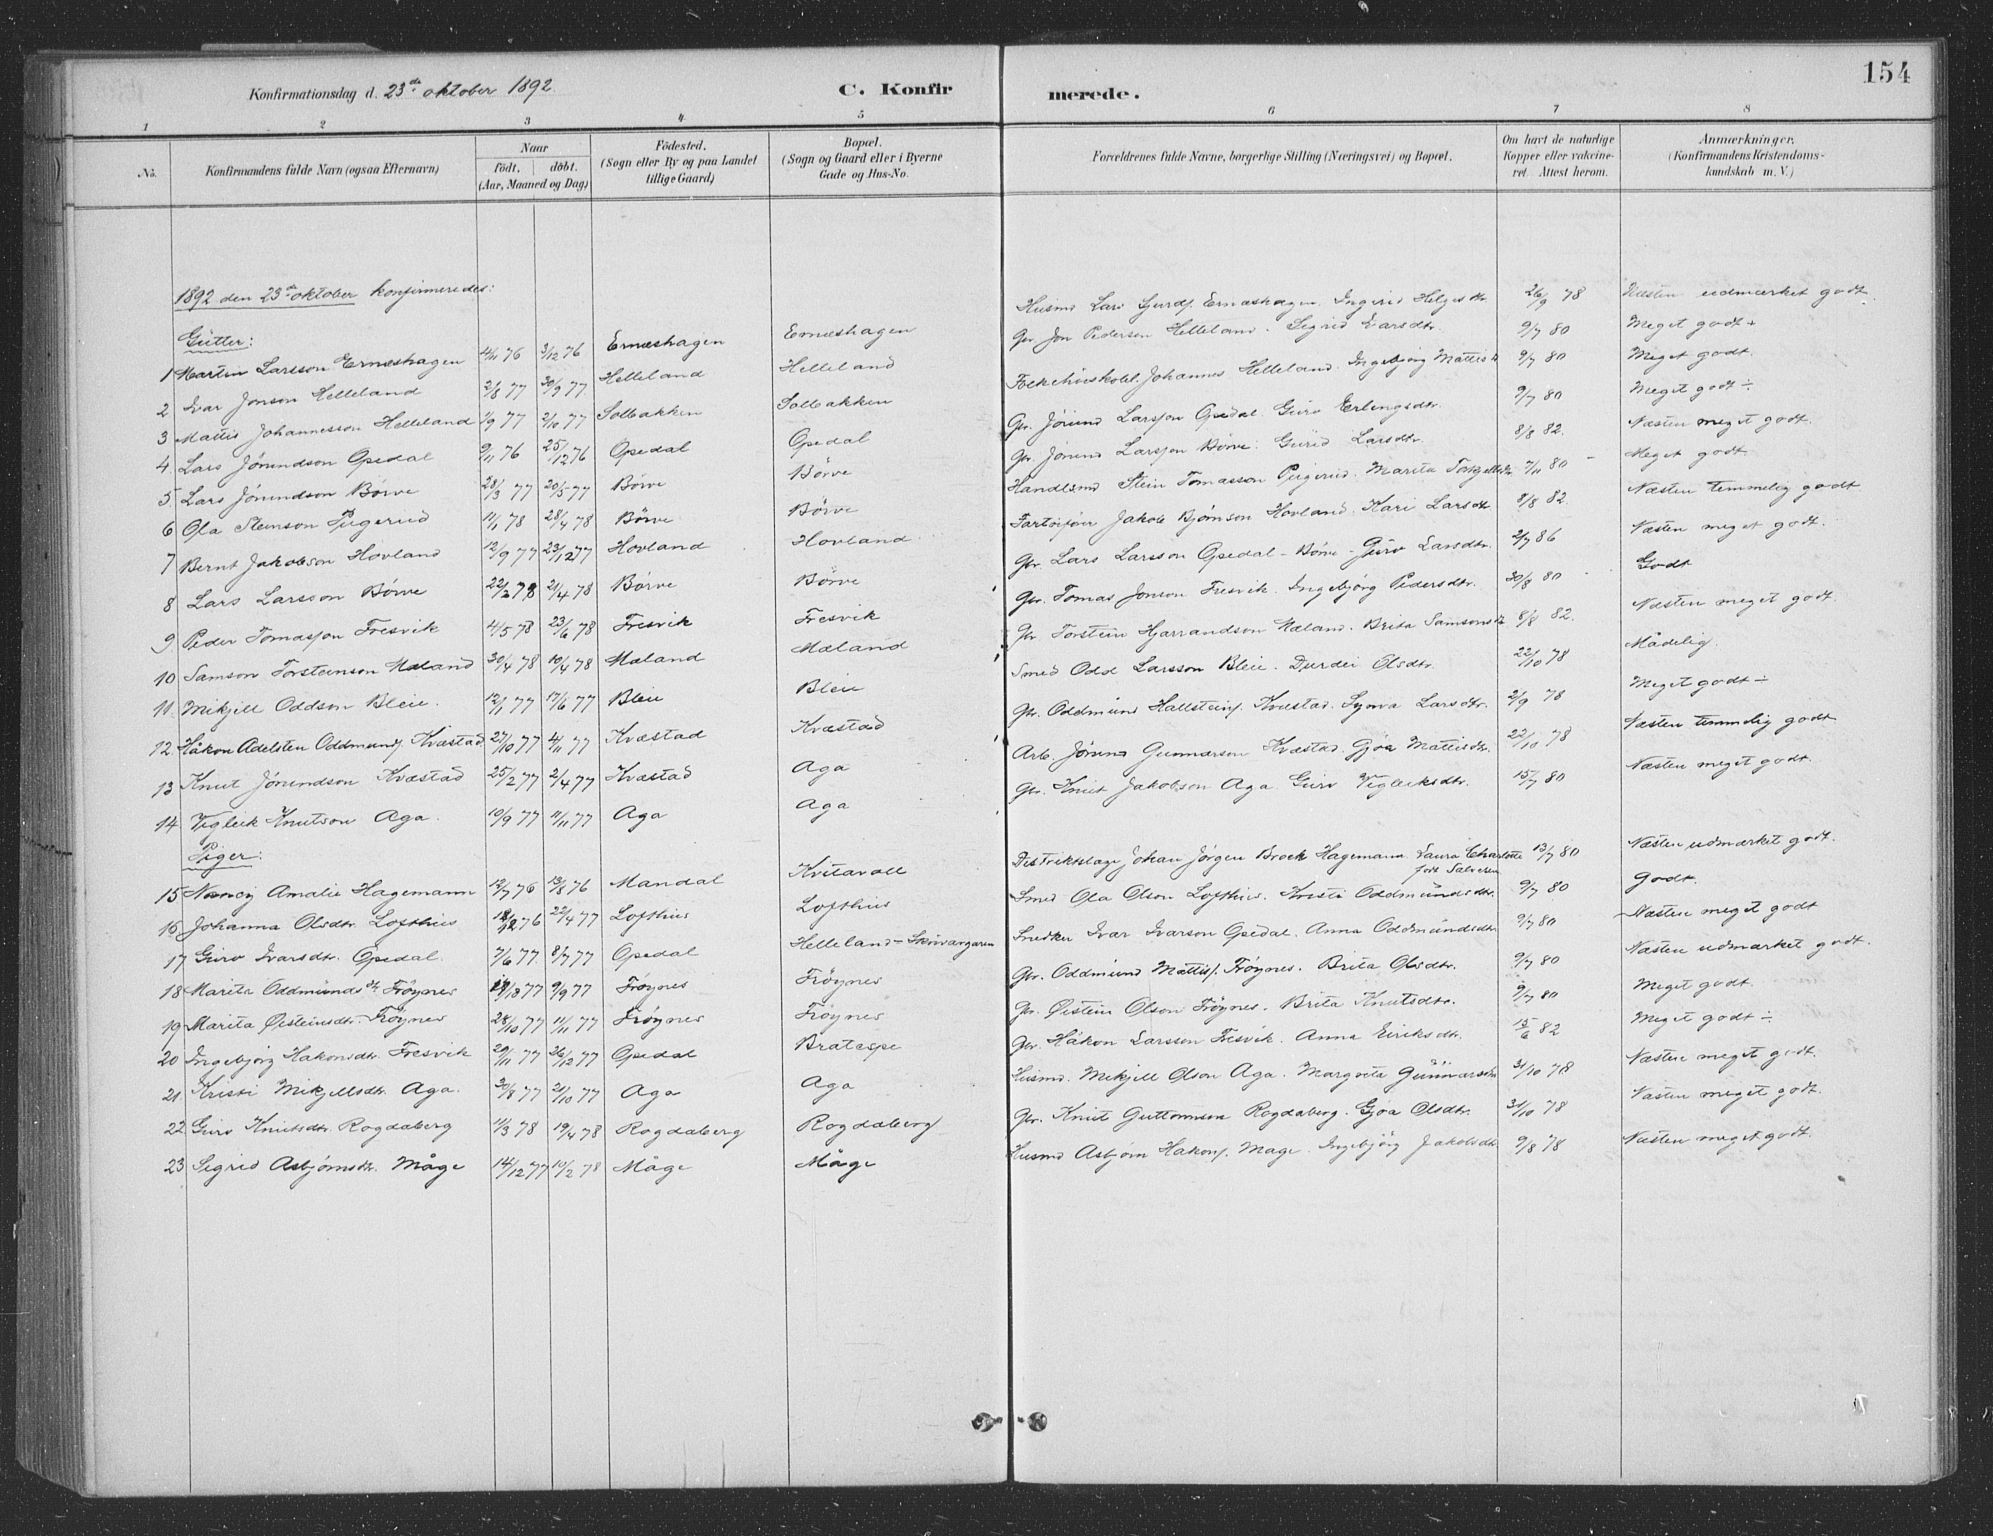 154
Konfirmationsdag d. 23de oktober 1892
C. Konfirmerede.
1 2 3 4 5 6 7 8
No. Konfirmandens fulde Navn (ogsaa Efternavn) Naar Födt. döbt. (Aar, Maaned og Dag) Födested. (Sogn eller By og paa Landet tillige Gaard) Bopæl. (Sogn og Gaard eller i Byerne Gade og Hus-No. Forældrenes fulde Navne, borgerlige Stilling (Næringsvei) og Bopæl. Om havt de naturlige Kopper eller vakcineret. Attest herom. Anmærkninger. (Konfirmandens Kristendomskundskab m. V.)
1892 den 23de oktober konfirmeredes:
Gutter:
1 Martin Larsson Ernæshagen 4/11 76 3/12 76 Ernæshagen Ernæshagen Husmd Lars Gurdf. Ernæshagen. Ingirid Helgesdtr 26/9 78 Næsten udmærket godt
2 Ivar Jonson Helleland 2/8 77 30/9 77. Helleland Helleland Gr. Jon Pedersen Helleland. Sigrid Ivarsdtr. 9/7 80 Meget godt +
3 Mattis Johannesson Helleland 1/9 77 2/10 77 Solbakken Solbakken Folkehöiskolel. Johannes Helleland. Ingebjörg Mattisdt 9/7 80 Meget godt.
4. Lars Jörundson Opedal 9/11 76 25/12 76 Opedal Opedal Gr. Jörund Larsson Opedal. Guro Erlingsdtr. 9/7 80 Meget godt ÷
5 Lars Jörundson Börve 28/3 77 20/5 77 Börve Börve Gr. Jörund Larsson Börve. Gurid Larsdtr. 8/8 82. Næsten meget godt.
6 Ola Steinson Pugerud 11/1 78 28/4 78 Börve Börve Handlsmd Stein Tomasson Pugerud. Marita Torgelsdtr 7/11 80 Meget godt
7 Bernt Jakobson Hovland 12/9 77 23/12 77 Hovland Hovland. Fartöiför Jakob Bjørnson Hovland. Kari Larsdtr 8/8 82. Næsten temmelig godt
8 Lars Larsson Börve 22/2 78 21/4 78 Börve Börve Gr. Lars Larsson Opedal - Börve - Guro Larsdtr. 2/7 86 Næsten meget godt.
9 Peder Tomasson Fresvik 4/5 78 23/6 78 Fresvik Fresvik Gr. Tomas Jonson Fresvik. Ingebjörg Pedersdtr. 30/8 80 Godt
10 Samson Torsteinson Mæland 30/4 78 10/4 78 Mæland Mæland Gr. Torstein Hjarrandson Mæland. Brita Samsonsdtr 8/8 82. Næsten meget godt.
11. Mikjell Oddson Bleie. 12/1 77 17/6 77 Bleie Bleie Smed Odd Larsson Bleie. Durdei Olsdtr. 22/10 78 Mådelig.
12 Håkon Adelsten Oddmundf. Kvæstad 27/10 77 4/11 77 Kvæstad Kvæstad Gr. Oddmund Hallsteinf. Kvæstad. Synva Larsdtr. 2/9 78 Meget godt ÷
13 Knut Jörundson Kvæstad 25/2 77 2/4 77 Kvæstad Aga Arb. Jörund Gunnarson Kvæstad. Gjöa Mattisdtr. 22/10 78 Næsten temmelig godt
14 Vigleik Knutson Aga. 10/9 77 11/11 77 Aga Aga Gr. Knut Jakobson Aga. Guro Vigleiksdtr. 15/7 80 Næsten meget godt.
Piger:
15 Nancy Amalie Hagemann 12/7 76 13/8 76 Mandal Kvitavoll Distriktslæge Johan Jörgen Brock Hagemann Laura Charlotte födt Salvesen 13/7 80 Næsten udmærket godt.
16 Johanna Olsdtr. Lofthus 76 22/4 77 Lofthus Lofthus Smed Ola Olson Lofthus. Kristi Oddmundsdtr. 9/7 80 Godt.
17 Guro Ivarsdtr. Opedal. 7/6 77. 8/7 77 Opedal Helleland - Skövangaren Snedker Ivar Ivarson Opedal. Anna Oddmundsdtr 9/7 80 Næsten meget godt
18 Marita Oddmundsdtr Fröynes 77 9/9 77 Fröynes Fröynes Gr. Oddmund Mattisf. Fröynes. Brita Olsdtr. 9/7 80 Næsten udmærket godt.
19 Marita Øisteinsdtr. Fröynes 28/10 77 11/11 77 Fröynes Fröynes Gr. Øistein Olson Fröynes. Brita Knutsdtr. 9/7 80 Meget godt.
20 Ingebjörg Håkonsdtr. Fresvik 29/11 77 26/12 77 Opedal Bratespe Gr. Håkon Larsson Fresvik. Anna Eiriksdtr. 15/6 82 Meget godt ÷
21 Kristi Mikjellsdtr. Aga. 30/8 77 21/10 77 Aga Aga Husmd. Mikjell Olson Aga. Margreta Gunnarsdtr 31/10 78 Næsten meget godt.
22 Guro Knutsdtr. Rogdaberg 11/3 78 19/4 78 Rogdaberg Rogdaberg Gr. Knut Guttormson Rogdaberg. Gjöa Olsdtr. 31/10 78 Næsten meget godt.
23 Sigrid Asbjörnsdtr. Måge 14/12 77 10/2 78 Måge Måge Husmd Asbjörn Håkonf. Måge. Ingebjörg Jakobsdtr. 9/8 78 Næsten meget godt.